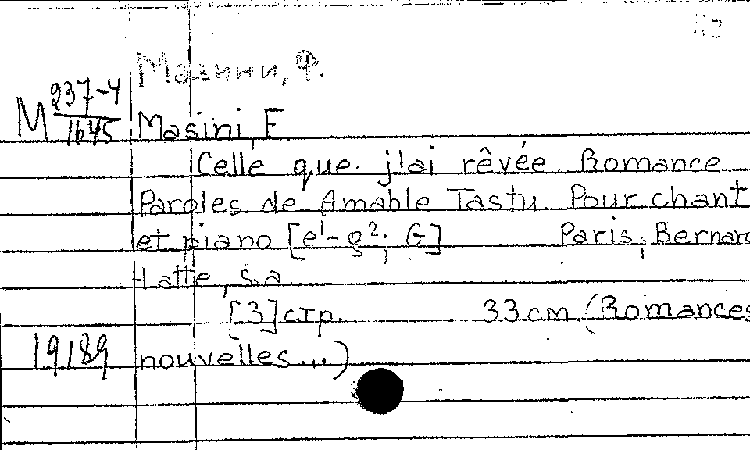 Мазини, Ф.
М 237-4
1645
Masini, F
Celle que j'ai rêvée Romance
Paroles de Amable Tastu. Pour chant
et piano [e¹-g²; G] Paris, Bernard
Latte, s.a
[3] стр. 33 cm (Romances
19189 nouvelles...)